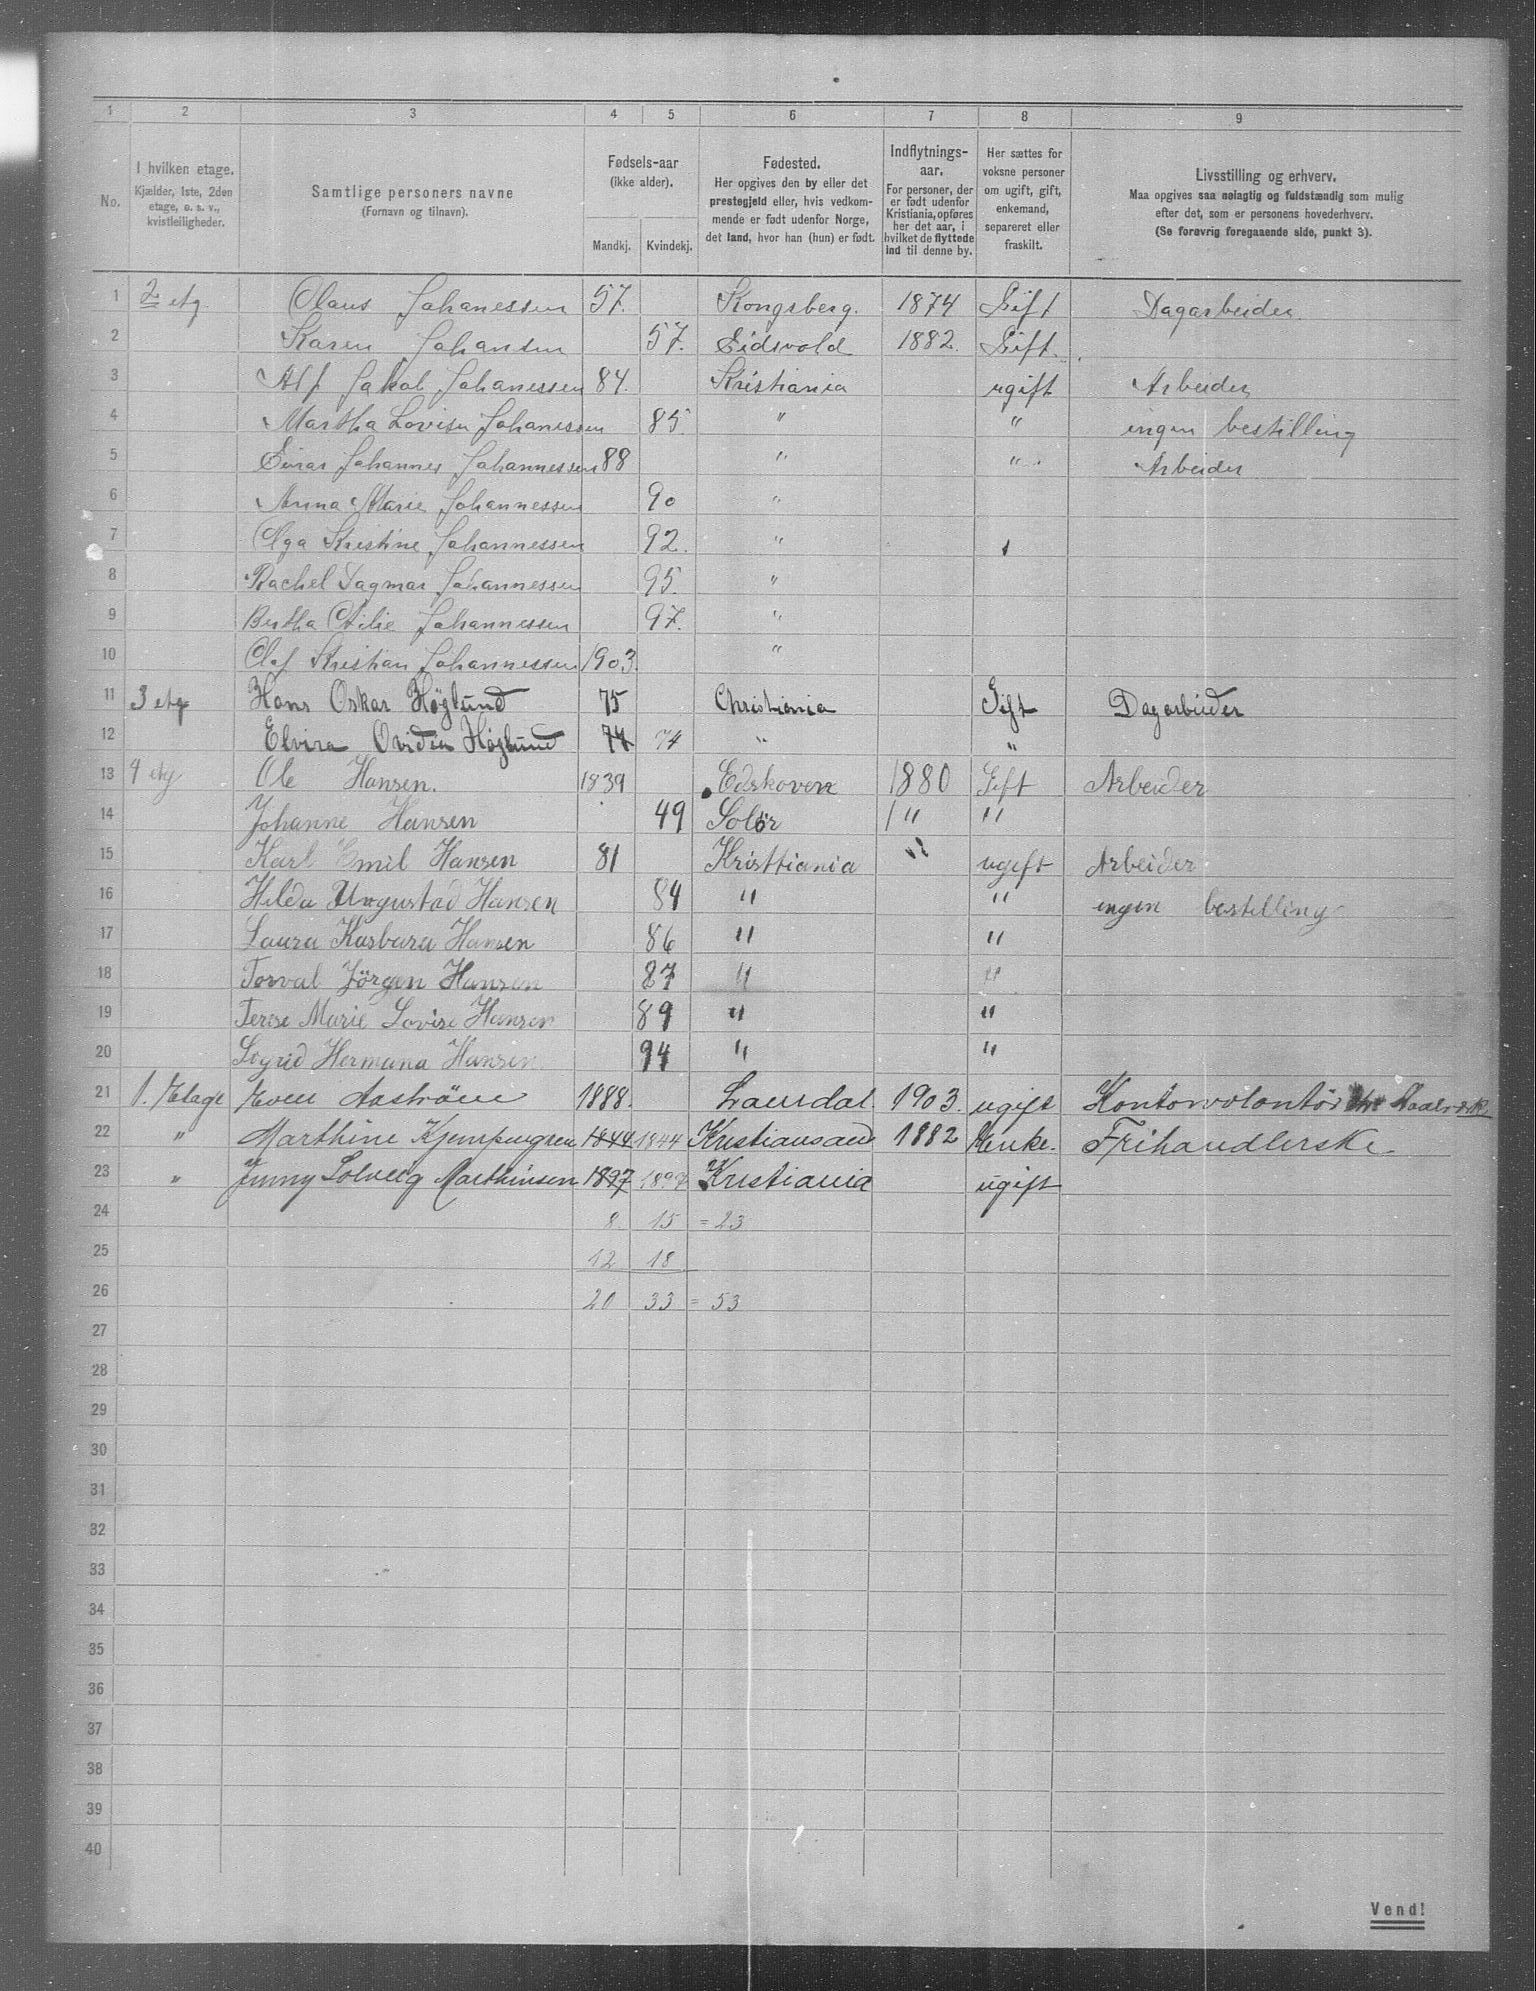 1 2 3 4 5 6 7 8 9
No.
I hvilken etage.
Kjælder, 1ste, 2den
etage, o. s. v.,
kvistleiligheder.
Samtlige personers navne
(Fornavn og tilnavn).
Fødsels-aar
(ikke alder).
Mandkj. Kvindekj.
Fødested.
Her opgives den by eller det
prestegjeld eller, hvis vedkom-
mende er født udenfor Norge,
det land, hvor han (hun) er født.
Indflytnings-
aar.
For personer, der
er født udenfor
Kristiania, opføres
her det aar, i
hvilket de flyttede
ind til denne by.
Her sættes for
voksne personer
om ugift, gift,
enkemand,
separeret eller
fraskilt.
Livsstilling og erhverv.
Maa opgives saa nøiagtig og fuldstændig som mulig
efter det, som er personens hovederhverv.
(Se forøvrig foregaaende side, punkt 3).
1 2 etg Claus Johanessen 57. Kongsberg. 1874 Gift Dagarbeider.
2 Karen Johansen 57. Eidsvold 1882. Gift.
3 Alf Jakob Johanessen 84. Kristiania ugift Arbeider
4 Martha Lovise Johanessen 85 " " ingen bestilling
5 Einar Johannes Johannessen 88 " " Arbeider
6 Anna Marie Johannessen 90 "
7 Olga Kristine Johannessen 92. "
8 Rachel Dagmar Johannessen 95. "
9 Bertha Otilie Johannessen 97. "
10 Olaf Kristian Johannessen 1903. "
11 3 etg Hans Oskar Höglund 75 Christiania Gift Dagarbeider
12 Elvira Ovidia Höglund 74 74 " "
13 4 etg Ole Hansen. 1839 Edskoven 1880 Gift Arbeider
14 Johanne Hansen 49 Solör " "
15 Karl Emil Hansen 81 Kristtiania " ugift Arbeider
16 Hilda Hansen 84 " " ingen bestilling
17 Laura Karbara Hansen 86 " "
18 Torval Jörgen Hansen 87 " "
19 Terese Marie Lovise Hansen 89 " "
20 Sigrid Hermana Hansen 94 " "
21 1. Etage Even Aaström 1888. Laurdal. 1903. ugift Kontorvolontör
22 " Marthine Kjempengren 1844 1844 Kristiansand 1882 Enke. Frihandlerske
23 " Jenny Solveig Marthinsen 1897 1897 Kristiania ugift
24 8 15 = 23
25 12 18
26 20 33 = 53
27
28
29
30
31
32
33
34
35
36
37
38
39
40
Vend!